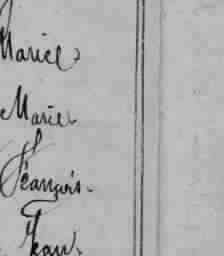 Marie
Marie
François
Jean